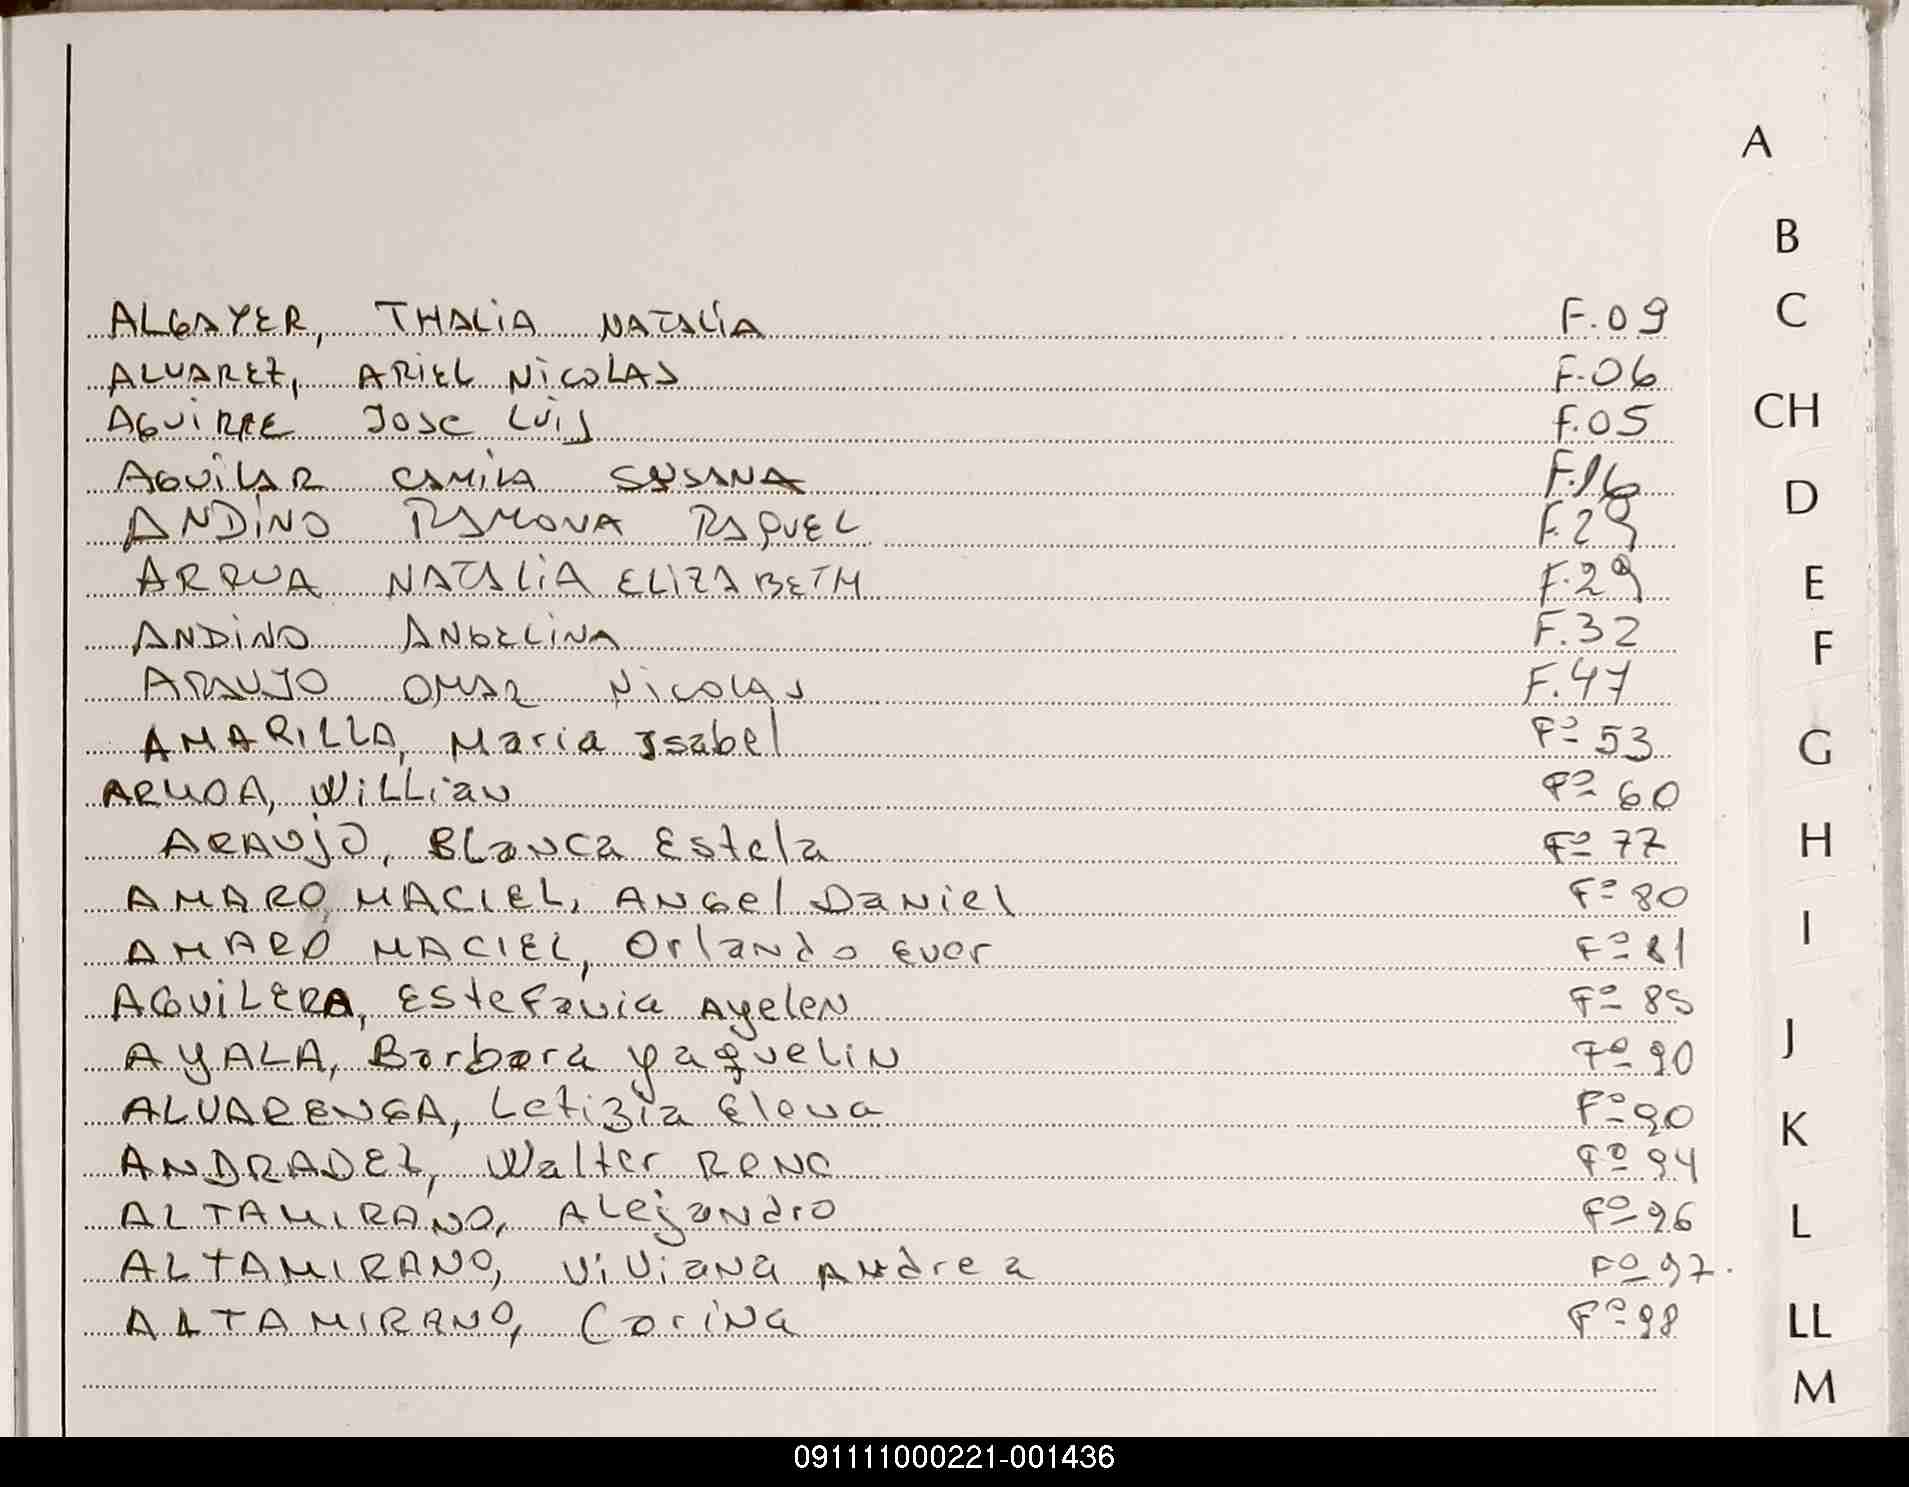 ALGAYER, THALIA NATALIA F.09
ALVAREZ, ARIEL NICOLAS F.06
AGUIRRE JOSE LUIS F.05
AGUILAR CAMILA SUSANA F.16
ANDINO RAMONA RAQUEL F.29
ARRUA NATALIA ELIZABETH F.29
ANDINO ANGELINA F.32
ARAUJO OMAR NICOLAS F.47
AMARILLA, Maria Isabel Fº 53
ARMOA, WILLiaN Fº 60
ARAUJO, BLaNca Estela Fº 77
AMARO MACIEL, ANGel DaNiel Fº 80
AMARO MACIEL, OrlaNdo Ever Fº 81
AGUILERA, EsteFaNia AyeleN Fº 85
AYALA, Barbara yaqueliN Fº 90
ALVARENGA, Letizia EleNa Fº 90
ANDRADEZ, Walter RENE Fº 94
ALTAMIRANO, ALejaNdro Fº 96
ALTAMIRANO, ViViaNa ANdrea Fº 97.
ALTAMIRANO, CoriNa Fº 98
A
B
C
CH
D
E
F
G
H
I
J
K
L
LL
M
091111000221-001436